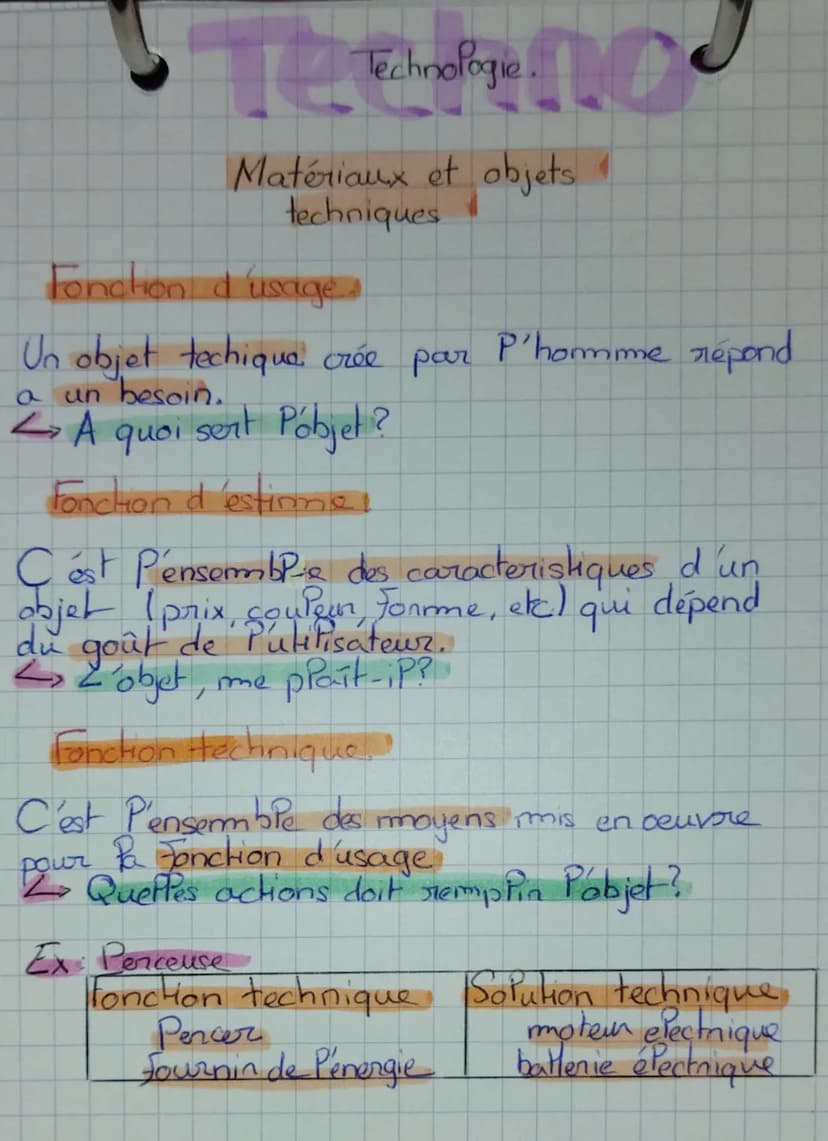 Techno
Technologie.
Matériaux et objets
techniques
Fonction d'usage.
Un objet techique crée par l'homme répond
a un besoin.
↳ A quoi sert l'objet?
Fonction d'estime
C'est l'ensemble des caracteristiques d'un
objet (prix, couleur, forme, etc) qui dépend
du goût de l'utilisateur.
↳ L'objet, me plaît-il?
Fonction technique.
C'est l'ensemble des moyens mis en oeuvre
pour la fonction d'usage
↳ Quelles actions doit remplir l'objet?
Ex: Perceuse
Fonction technique Solution technique
Percer moteur electrique
fournir de l'énergie batterie électrique